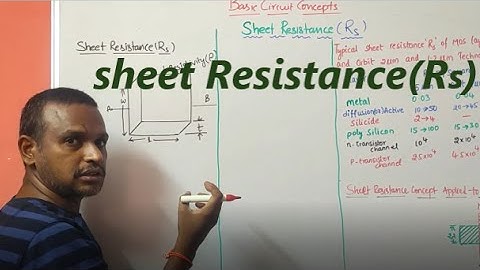 Basic Circuit Concepts
Sheet Resistance (Rs)
Sheet Resistance (Rs)
Resistivity (ρ)
sheet Resistance(Rs)
Typical sheet resistance 'Rs' of MOS
metal 0.03 0.04
diffusion(n)Active 10→50 20→45
Silicide 2→4 —
poly silicon 15→100 15→30
n-transistor channel 10⁴ 2x10⁴
P-transistor channel 2.5x10⁴ 4.5x10⁴
A
W
B
t
L
Sheet Resistance Concept Applied